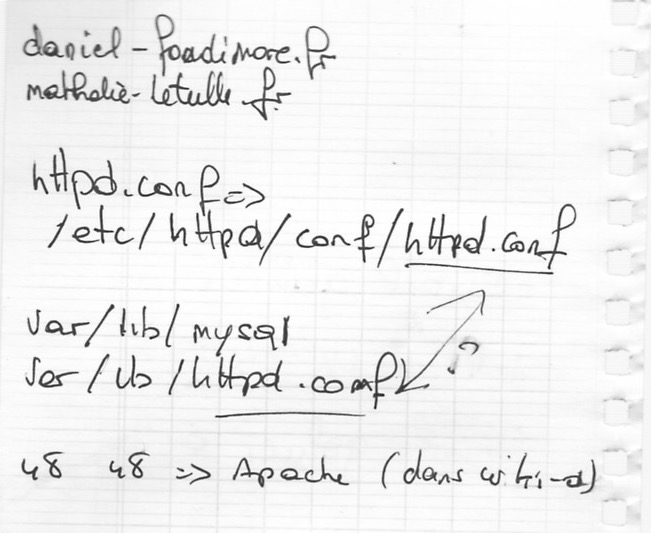 daniel-foadimore.fr
nathalie-letulle.fr
httpd.conf =>
/etc/httpd/conf/httpd.conf
var/lib/mysql
/lib/httpd.conf
?
48 48 => Apache (dans